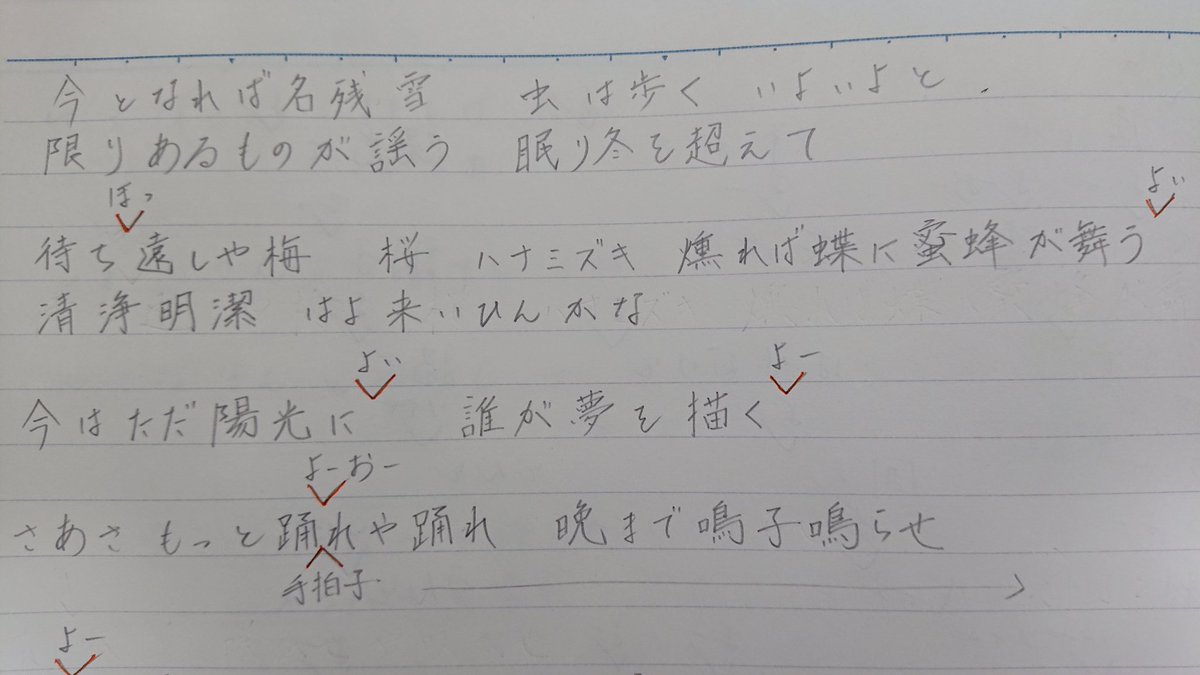 今となれば名残雪　虫は歩く　いよいよと.
限りあるものが謡う　眠り冬を超えて
ほっ　よい
待ち遠しや梅　桜　ハナミズキ　燻れば蝶に蜜蜂が舞う
清浄明潔　はよ来いひんがな
よい　よー
今はただ陽光に　誰が夢を描く
よーおー
さあさ もっと踊れや踊れ　晩まで鳴子鳴らせ
手拍子
よー